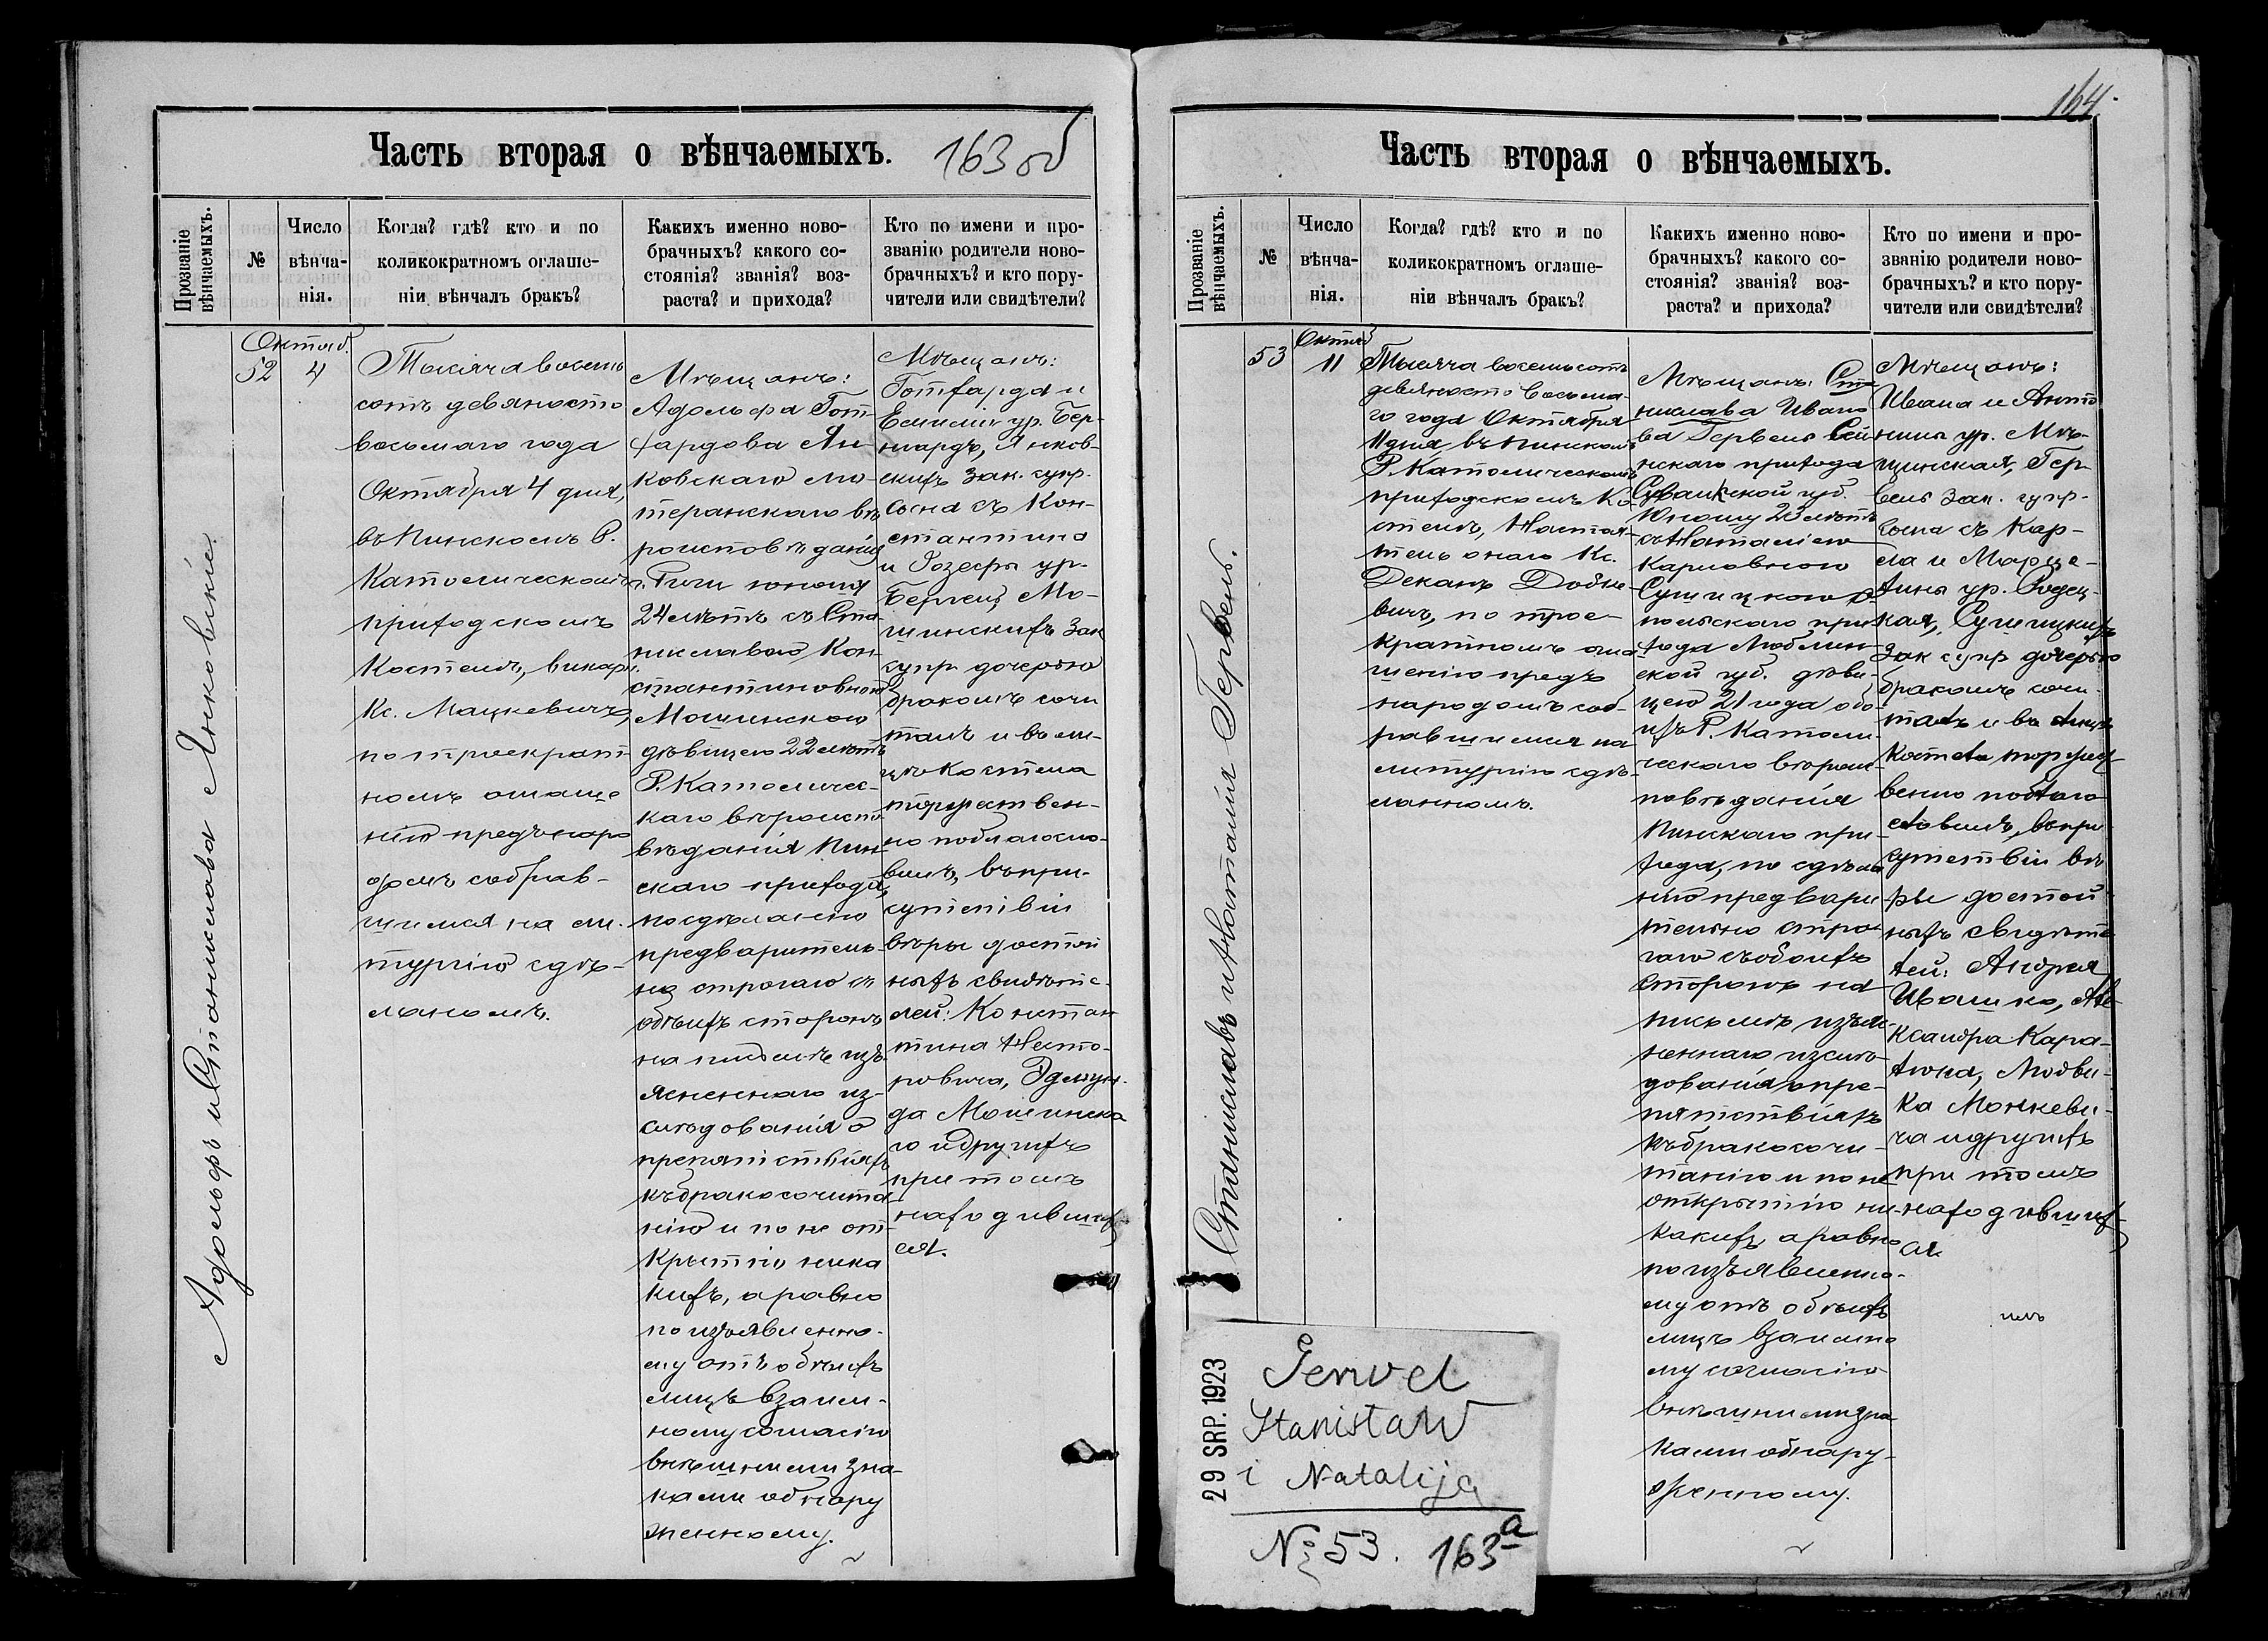 Часть вторая о вѣнчаемыхъ.
163 об
Прозваніе вѣнчаемыхъ.
№
Число вѣнча-
нія.
Когда? гдѣ? кто и по
коликократномъ оглаше-
ніи вѣнчалъ бракъ?
Каких­ъ именно ново-
брачныхъ? какого со-
стоянія? званія? воз-
раста? и прихода?
Кто по имени и про-
званію родители ново-
брачныхъ? и кто пору-
чители или свидѣтели?
Адольфъ и Станислава Янковскіе.
Октяб.
52
4
Тысяча восемь
сотъ девяносто
восьмаго года
Октября 4 дня,
въ Пинскомъ Р.
Католическомъ
приходскомъ
Костелѣ, викар.
Кс. Мацкевичъ,
по троекрат-
номъ оглаше
нію предъ наро
домъ собрав-
шимся на ли-
тургію сдѣ-
ланомъ.
Мѣщанъ:
Адольфа Гот-
фардова Ян-
ковскаго лю-
теранскаго вѣ
роисповѣданія
г. Риги юношу
24 лѣтъ съ Ста-
ниславою Кон-
стантиновною
Мошинскою
дѣвицею 22 лѣтъ
Р. Католичес-
каго вѣроиспо
вѣданія Пин-
скаго прихода,
по сдѣланію
предваритель-
но строгаго съ
обѣихъ сторонъ
на письмѣ изъ-
ясненнаго из-
слѣдованія о
препятствіяхъ
къ бракосочета
нію и по не от-
крытію ника
кихъ, а равно
по изъявленно-
му отъ обѣихъ
лицъ взаим-
ному согласію
внѣшними зна-
ками обнару
женному.
Мѣщанъ:
Готфарда и
Емиліи ур. Бер-
нардъ, Янков-
скихъ зак. супр.
сына съ Кон-
стантина
и Іозефы ур.
Бергель, Мо-
шинскихъ зак
супр дочерью
бракомъ соче
талъ и въ ли-
цѣ костела
торжествен-
но поблагосло-
вилъ, въ при-
сутствіи
вѣры достой
ныхъ свидѣте-
лей: Констан
тина Несто-
ровича, Эдмун-
да Мошинска
го и другихъ
при томъ
находившихъ
ся.
164.
Часть вторая о вѣнчаемыхъ.
Прозваніе вѣнчаемыхъ.
№
Число
вѣнча-
нія.
Когда? гдѣ? кто и по
коликократномъ оглаше-
ніи вѣнчалъ бракъ?
Какихъ именно ново-
брачныхъ? какого со-
стоянія? званія? воз-
раста? и прихода?
Кто по имени и про-
званію родители ново-
брачныхъ? и кто пору-
чители или свидѣтели?
Станиславъ и Наталія Гервель.
Октяб
53
11
Тысяча восемьсотъ
девяносто восьма-
го года Октября
11 дня, въ Пинскомъ
Р. Католическомъ
приходскомъ Ко-
стелѣ, Настоя-
тель онаго Кс.
Деканъ
по трое-
кратномъ огла
шенію предъ
народомъ соб-
равшимся на
литургію сдѣ-
ланномъ.
Мѣщанъ: Ста
нислава Ивано
ва Гервель Сей
нскаго прихода
Сувалкской губ.
юношу 23 лѣтъ
съ Наталіею
Карловною
Сушицкою
польскаго при
хода Люблин-
ской губ. дѣви-
цею 21 года обо
ихъ Р. Католи-
ческаго вѣроис-
повѣданія
Пинскаго при-
хода, по сдѣла
нію предвари
тельно стро-
гаго съ обоихъ
сторонъ на
письмѣ изъяс-
неннаго изслѣ-
дованія о пре-
пятствіяхъ
къ бракосоче-
танію и по не
открытію ни-
какихъ, а равно
по изъявленно-
му отъ обѣихъ
лицъ взаимно
му согласію
внѣшними зна-
ками обнару-
женному.
Мѣщанъ:
Ивана и Анто
нины ур. Мѣ-
щинская, Гер-
вель зак. супр-
сына съ Кар-
ла и Марце-
лины ур.
кая, Сушицкихъ
зак супр дочерью
бракомъ соче-
талъ и въ лицѣ
костела торжест
венно поблаго
словилъ, въ при-
сутствіи вѣ-
ры достой-
ныхъ свидѣте
лей: Андрея
Ивашко, Але-
ксандра Кара-
люна, Людви-
ка Монкеви-
ча и другихъ
при томъ
находившихъ
ся.
29 SRP. 1923
Gerwel
Stanisław
i Natalija
№ 53. 163a